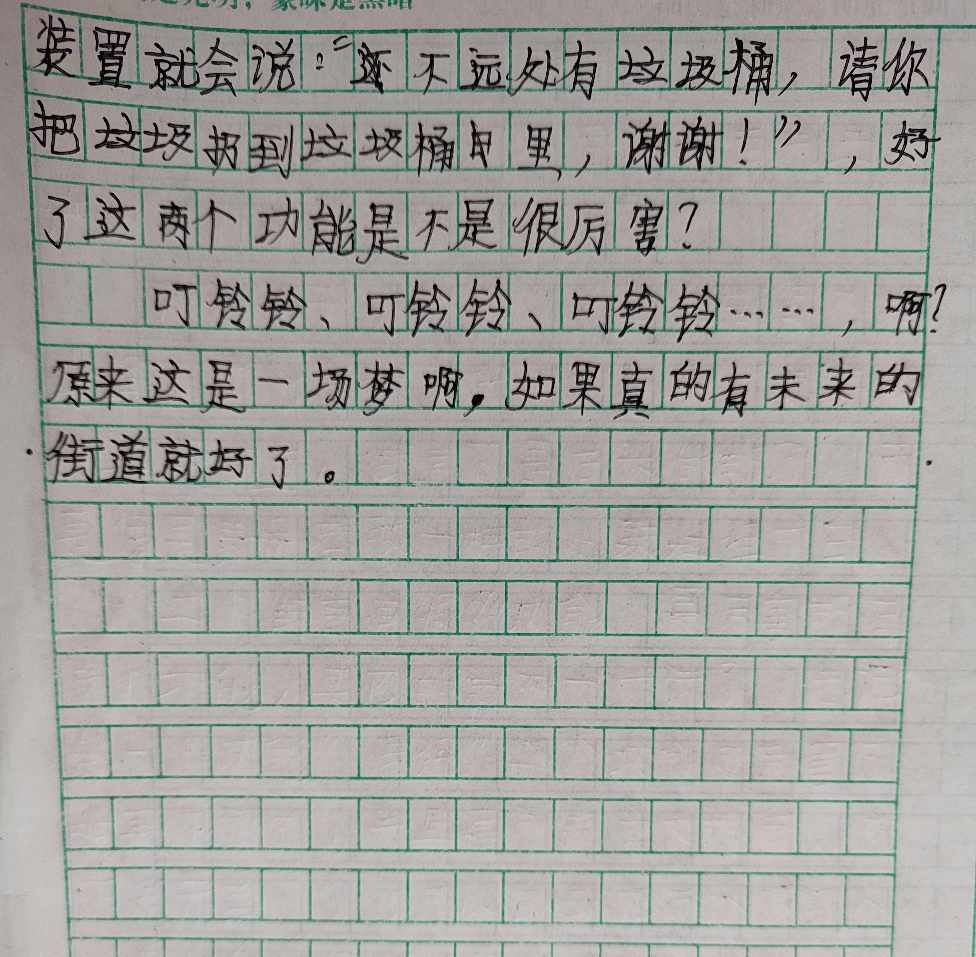 装置就会说："不远处有垃圾桶，请你
把垃圾扔到垃圾桶里，谢谢！"，好
了这两个功能是不是很厉害？
叮铃铃、叮铃铃、叮铃铃……，啊？
原来这是一场梦啊，如果真的有未来的
街道就好了。